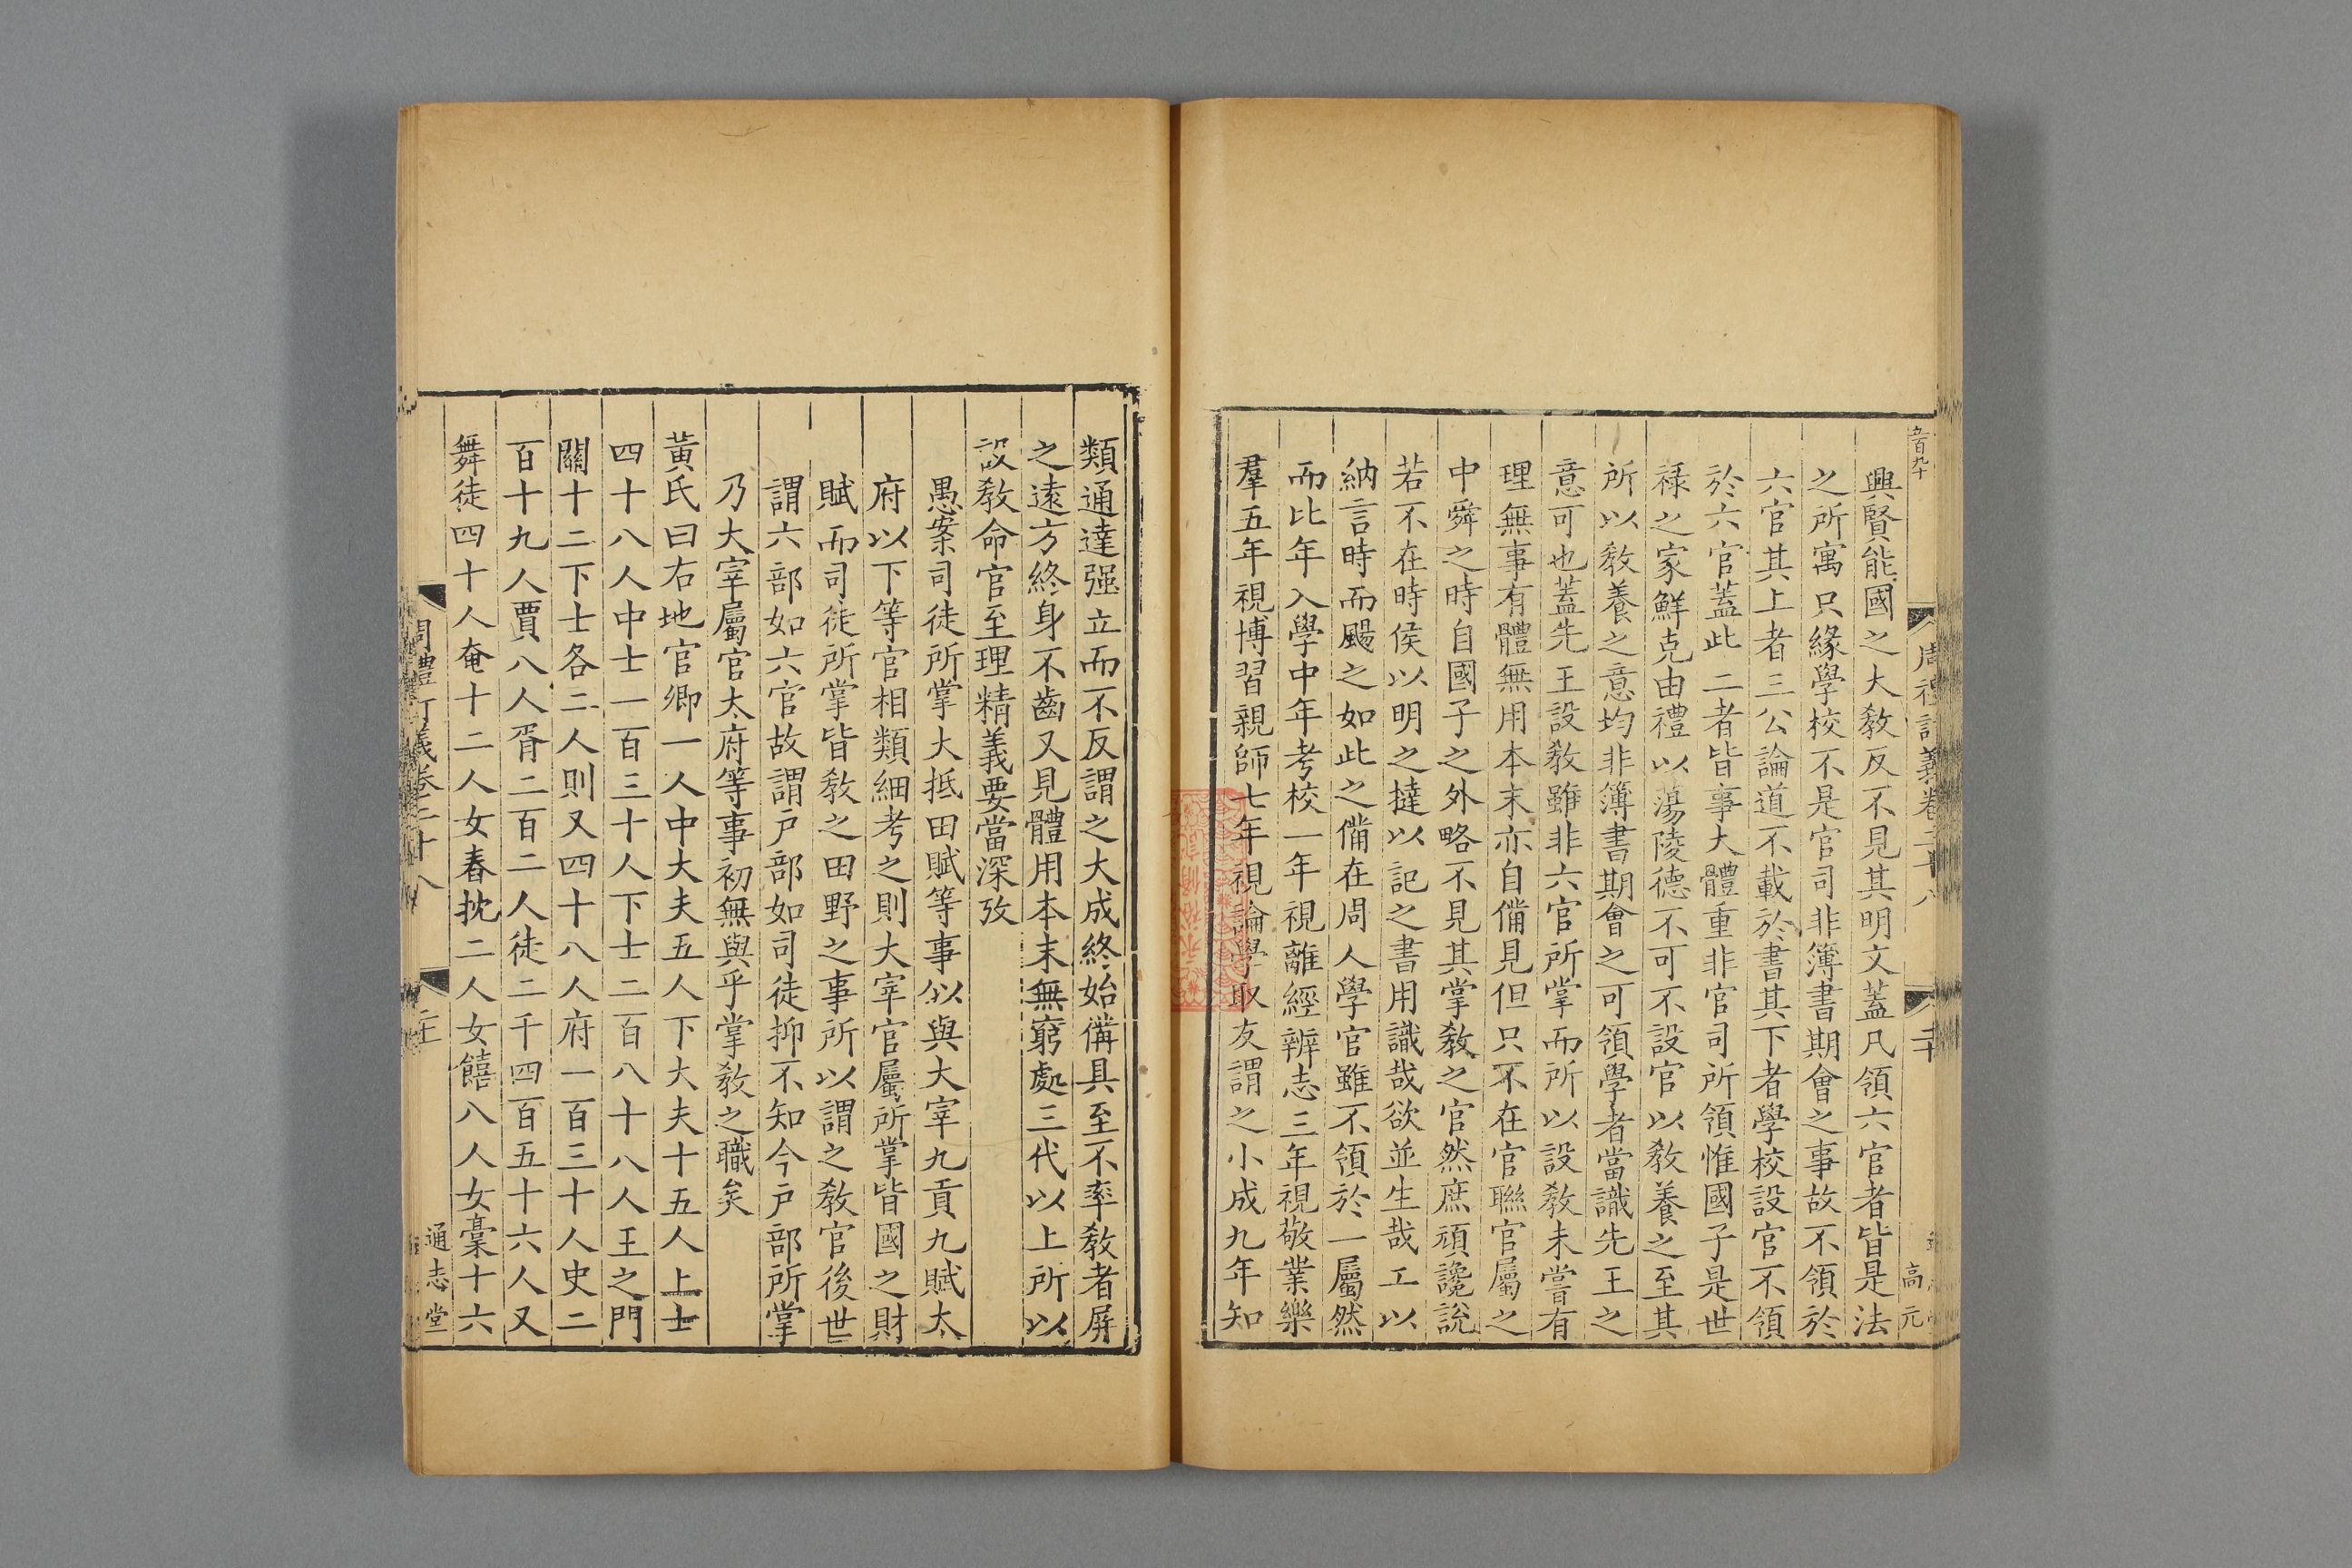 興賢能國之大敎反不見其明文蓋凡領六官者皆是法
之所寓只緣學校不是官司非簿書期會之事故不領於
六官其上者三公論道不載於書其下者學校設官不領
於六官蓋此二者皆事大體重非官司所領惟國子是世
祿之家鮮克由禮以蕩陵德不可不設官以敎養之至其
所以敎養之意均非簿書期會之可領學者當識先王之
意可也蓋先王設敎雖非六官所掌而所以設敎未嘗有
理無事有體無用本末亦自備見但只不在官聯官屬之
中舜之時自國子之外略不見其掌敎之官然庶頑讒說
若不在時侯以明之撻以記之書用識哉欲並生哉工以
納言時而颺之如此之備在周人學官雖不領於一屬然
而比年入學中年考校一年視離經辨志三年視敬業樂
羣五年視博習親師七年視論學取友謂之小成九年知
類通達强立而不反謂之大成終始備具至不率敎者屏
之遠方終身不齒又見體用本末無窮處三代以上所以
設敎命官至理精義要當深攷
愚案司徒所掌大抵田賦等事似與大宰九貢九賦太
府以下等官相類細考之則大宰官屬所掌皆國之財
賦而司徒所掌皆敎之田野之事所以謂之敎官後世
謂六部如六官故謂戶部如司徒抑不知今戶部所掌
乃大宰屬官太府等事初無與乎掌敎之職矣
黃氏曰右地官卿一人中大夫五人下大夫十五人上士
四十八人中士一百三十人下士二百八十八人王之門
關十二下士各二人則又四十八人府一百三十人史二
百十九人賈八人胥二百二人徒二千四百五十六人又
舞徒四十人奄十二人女舂抌二人女饎八人女稾十六
周禮訂義卷二十八
通志堂
五百九十
周禮訂義卷二十八
二十
高元